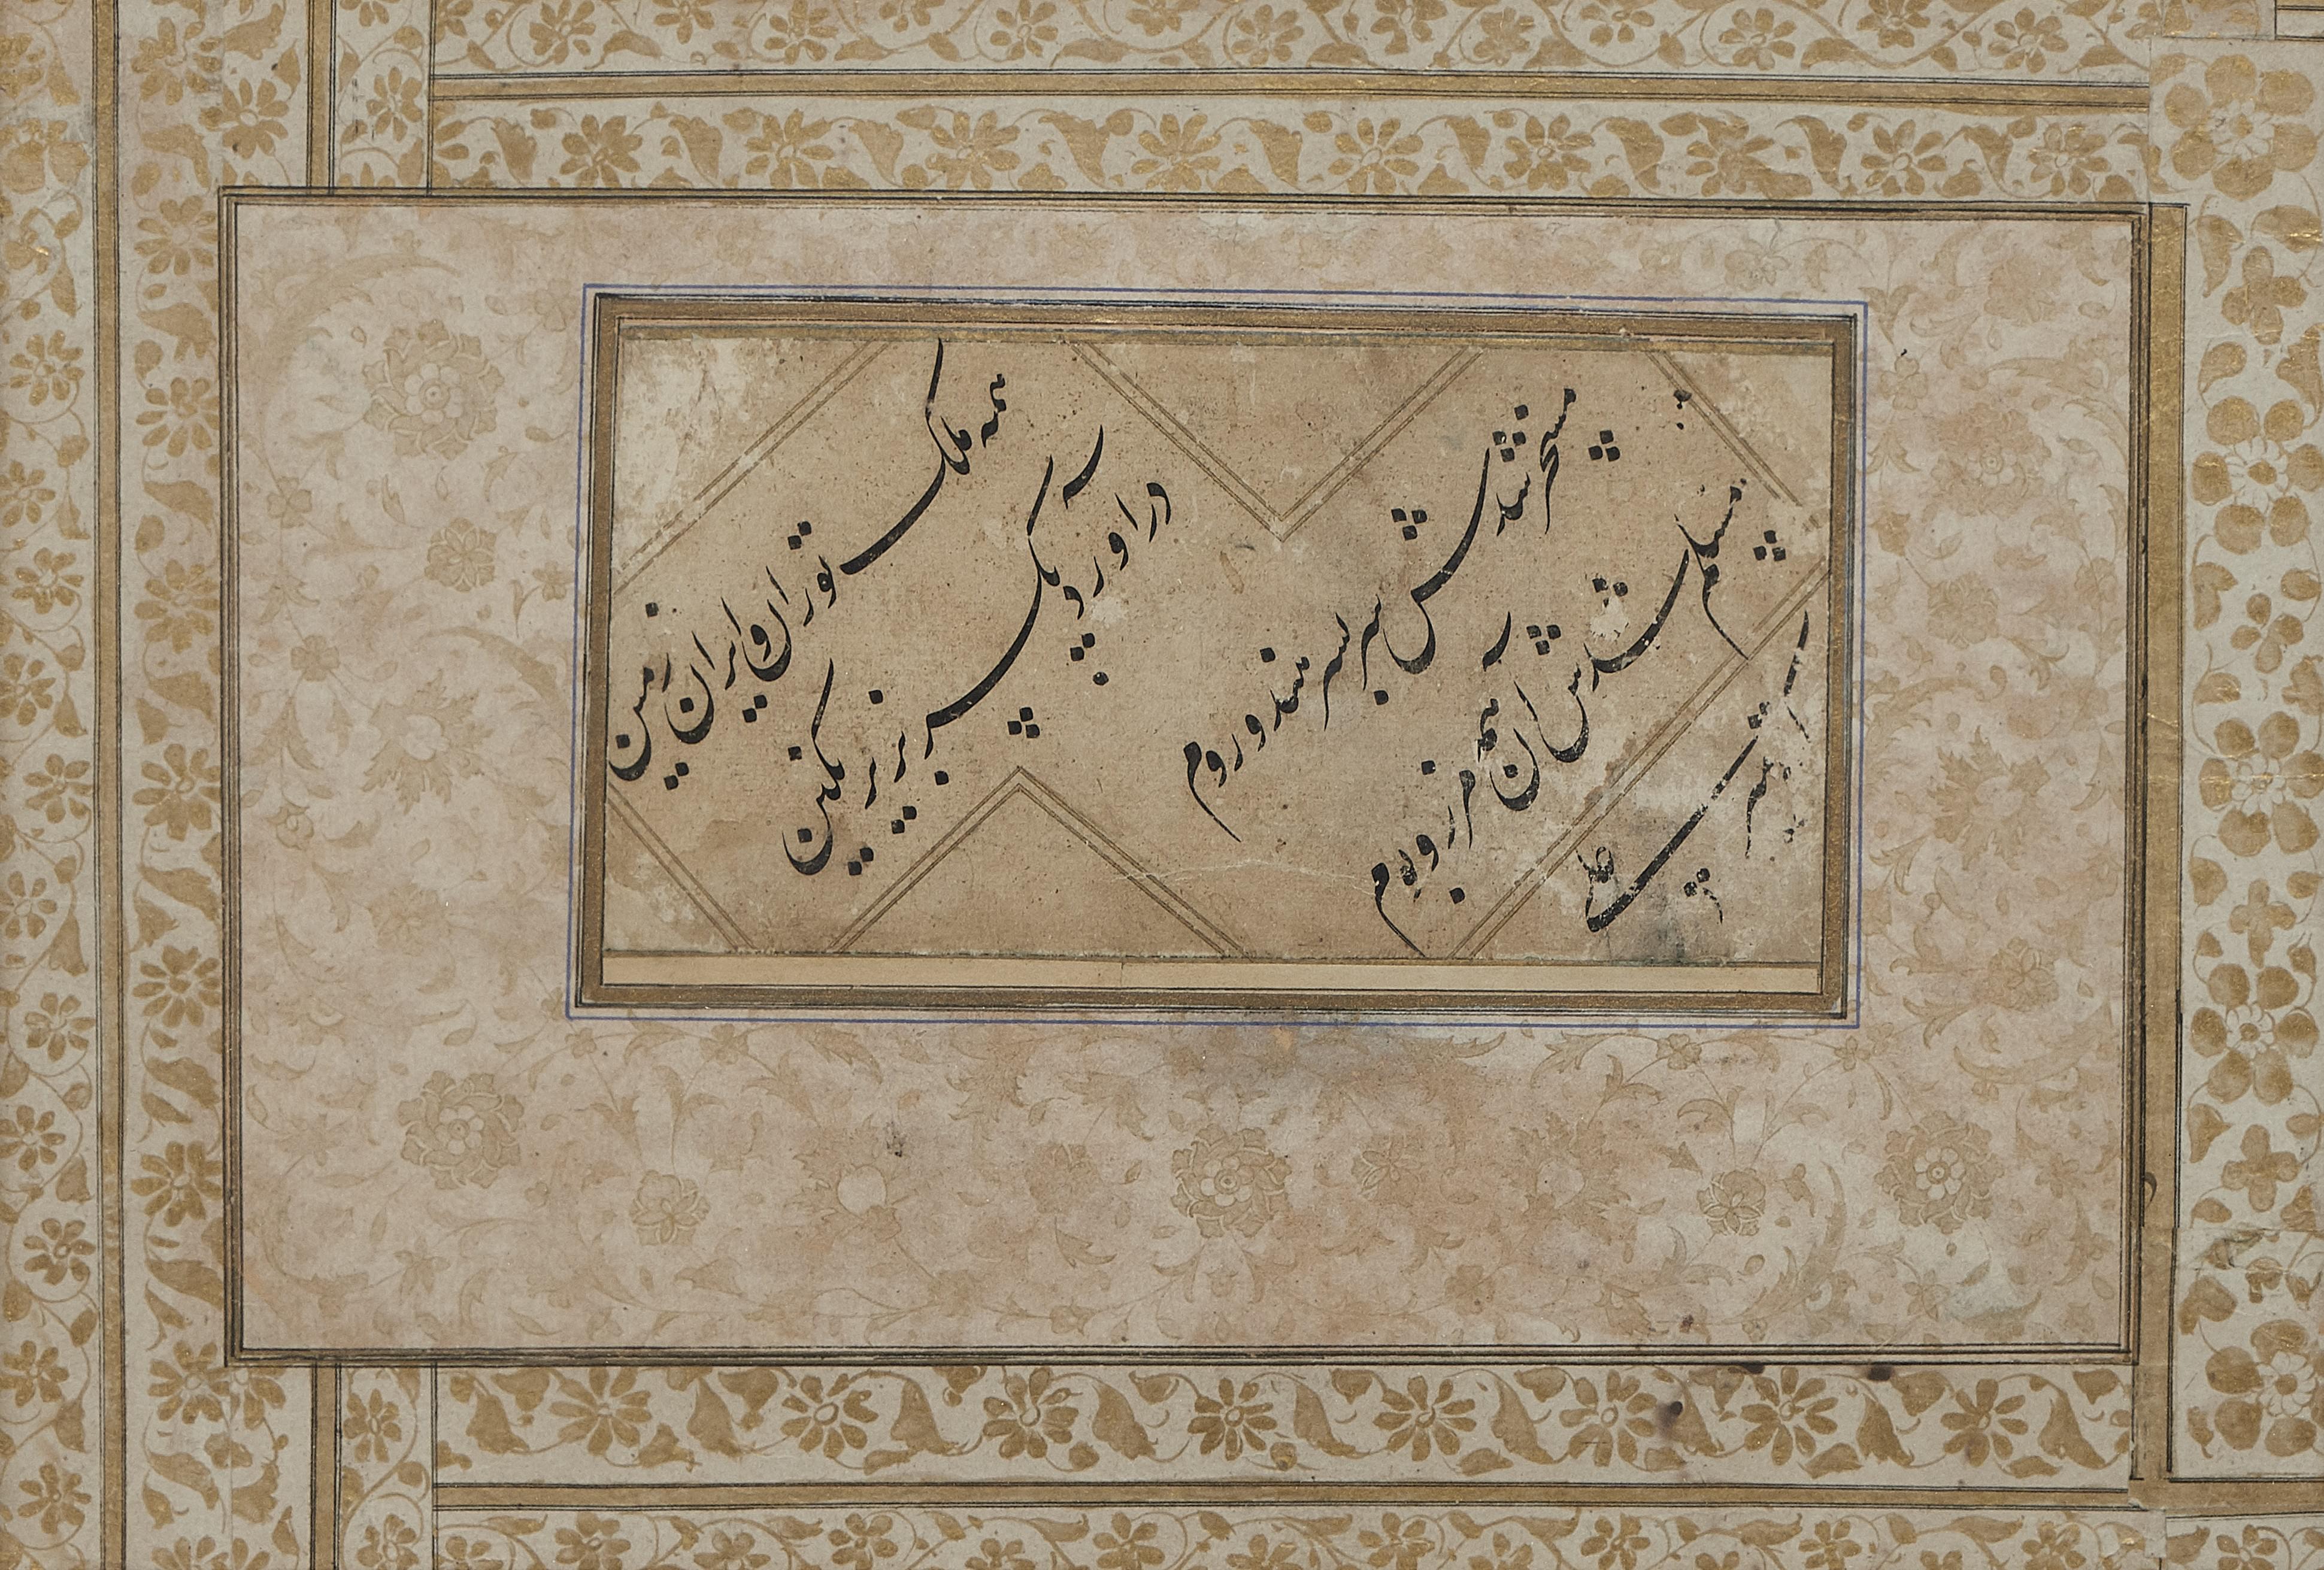 مسخر شدش سر بسر هند و روم
مسلم شدش آن همه مرز و بوم
همه ملک توران و ایران زمین
در آورد یکسر بزیر نگین